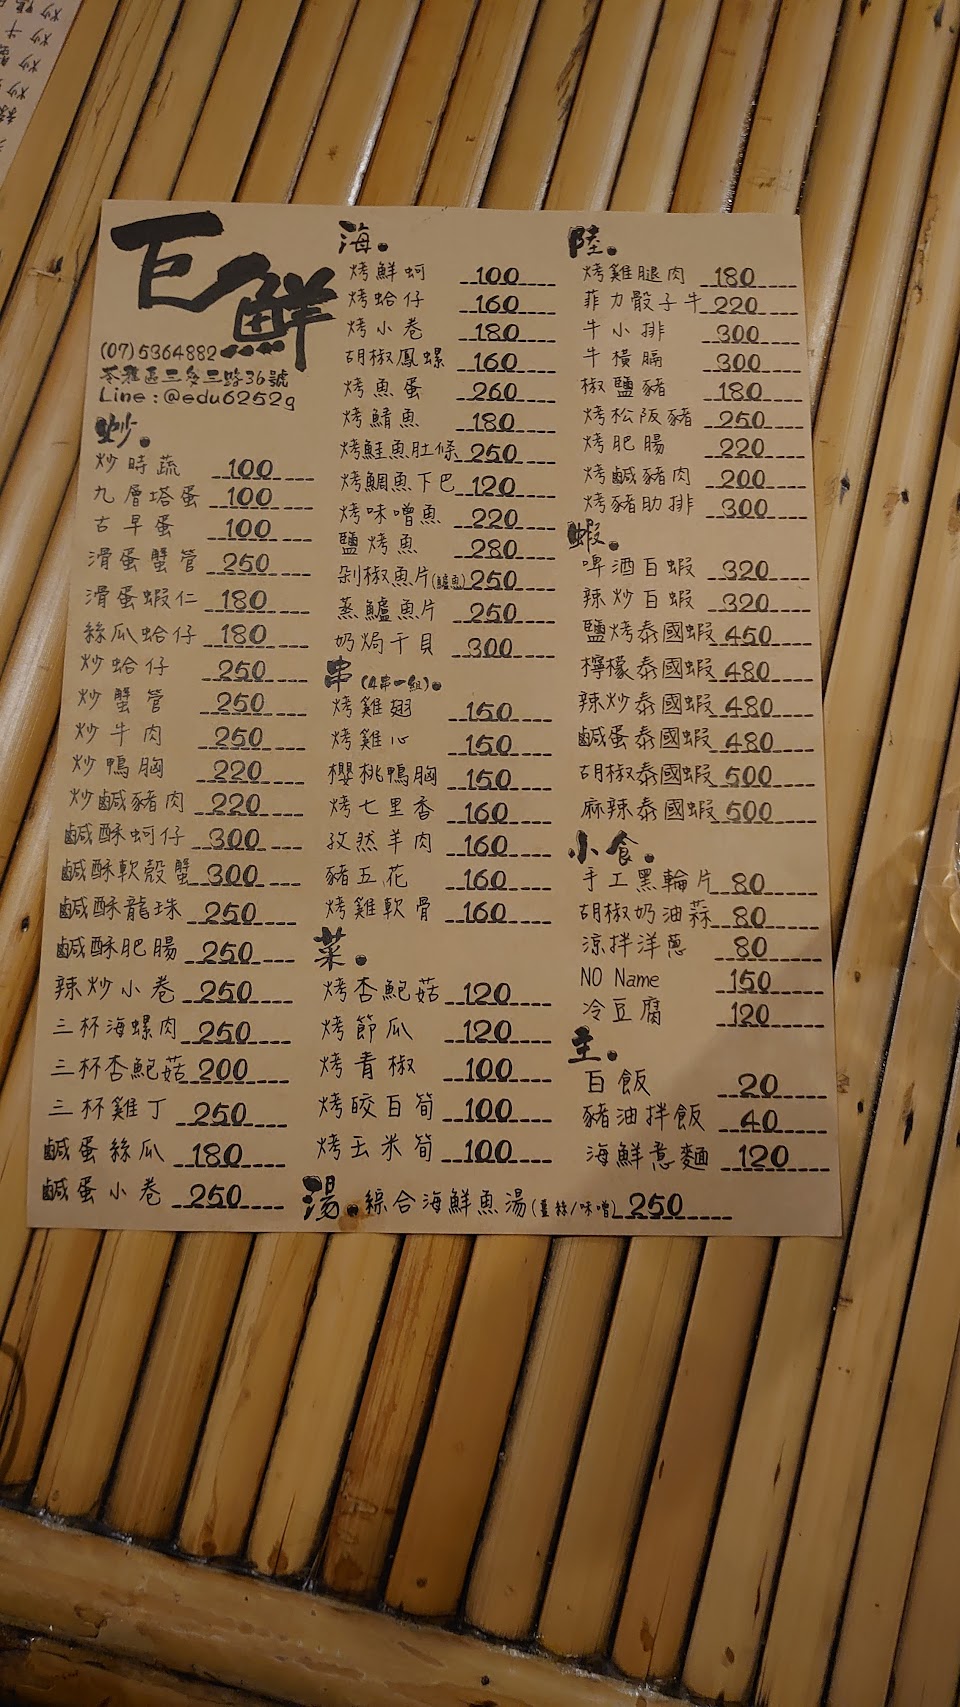 巨鮮
(07)5364882
苓雅區三多三路36號
Line:@edu6252g
炒.
炒時蔬 100
九層塔蛋 100
古早蛋 100
滑蛋蟹管 250
滑蛋蝦仁 180
絲瓜蛤仔 180
炒蛤仔 250
炒蟹管 250
炒牛肉 250
炒鴨胸 220
炒鹹豬肉 220
鹹酥蚵仔 300
鹹酥軟殼蟹 300
鹹酥龍珠 250
鹹酥肥腸 250
辣炒小卷 250
三杯海螺肉 250
三杯杏鮑菇 200
三杯雞丁 250
鹹蛋絲瓜 180
鹹蛋小卷 250
海.
烤鮮蚵 100
烤蛤仔 160
烤小卷 180
胡椒鳳螺 160
烤魚蛋 260
烤鯖魚 180
烤鮭魚肚條 250
烤鯛魚下巴 120
烤味噌魚 220
鹽烤魚 280
剁椒魚片(鱸魚) 250
蒸鱸魚片 250
奶焗干貝 300
串(4串一組).
烤雞翅 150
烤雞心 150
櫻桃鴨胸 150
烤七里香 160
孜然羊肉 160
豬五花 160
烤雞軟骨 160
菜.
烤杏鮑菇 120
烤節瓜 120
烤青椒 100
烤皎白筍 100
烤玉米筍 100
湯.綜合海鮮魚湯(薑絲/味噌) 250
陸.
烤雞腿肉 180
菲力骰子牛 220
牛小排 300
牛橫膈 300
椒鹽豬 180
烤松阪豬 250
烤肥腸 220
烤鹹豬肉 200
烤豬肋排 300
蝦.
啤酒白蝦 320
辣炒白蝦 320
鹽烤泰國蝦 450
檸檬泰國蝦 480
辣炒泰國蝦 480
鹹蛋泰國蝦 480
胡椒泰國蝦 500
麻辣泰國蝦 500
小食.
手工黑輪片 80
胡椒奶油蒜 80
涼拌洋蔥 80
NO Name 150
冷豆腐 120
主.
白飯 20
豬油拌飯 40
海鮮煮麵 120